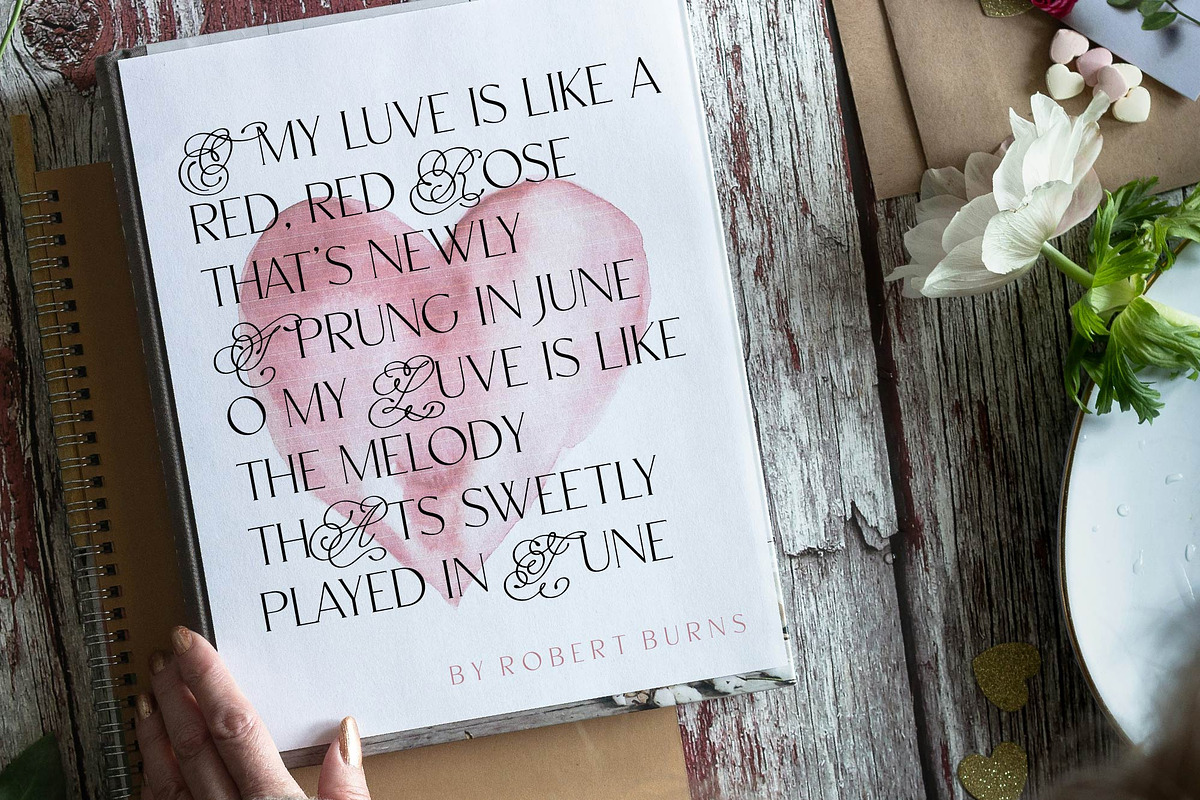 O MY LUVE IS LIKE A
RED, RED ROSE
THAT'S NEWLY
SPRUNG IN JUNE
O MY LUVE IS LIKE
THE MELODY
THATS SWEETLY
PLAYED IN TUNE
BY ROBERT BURNS